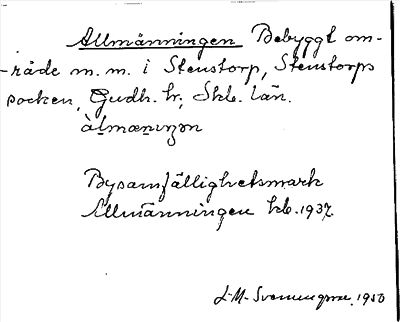 Allmänningen Bebyggt om-
-råde m.m. i Stenstorp, Stenstorps
socken, Gudh. hr, Skb. län.
àlmænɩŋən
Bysamfällighetsmark
Allmänningen hb. 1937.
1950